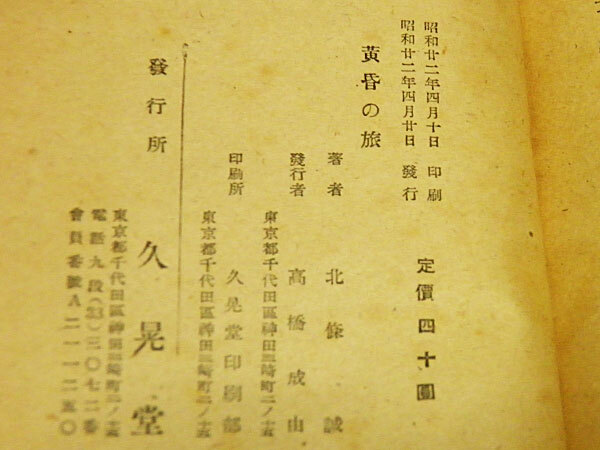 昭和廿二年四月十日 印刷
昭和廿二年四月廿日 發行
定價四十圓
黃昏の旅
著者 北條誠
發行者 高橋成山
東京都千代田區神田三崎町二ノ十五
印刷所 久晃堂印刷部
東京都千代田區神田三崎町二ノ十五
發行所 久晃堂
東京都千代田區神田三崎町二ノ十五
電話九段(33)三〇七二番
會員番號A二一一二五〇